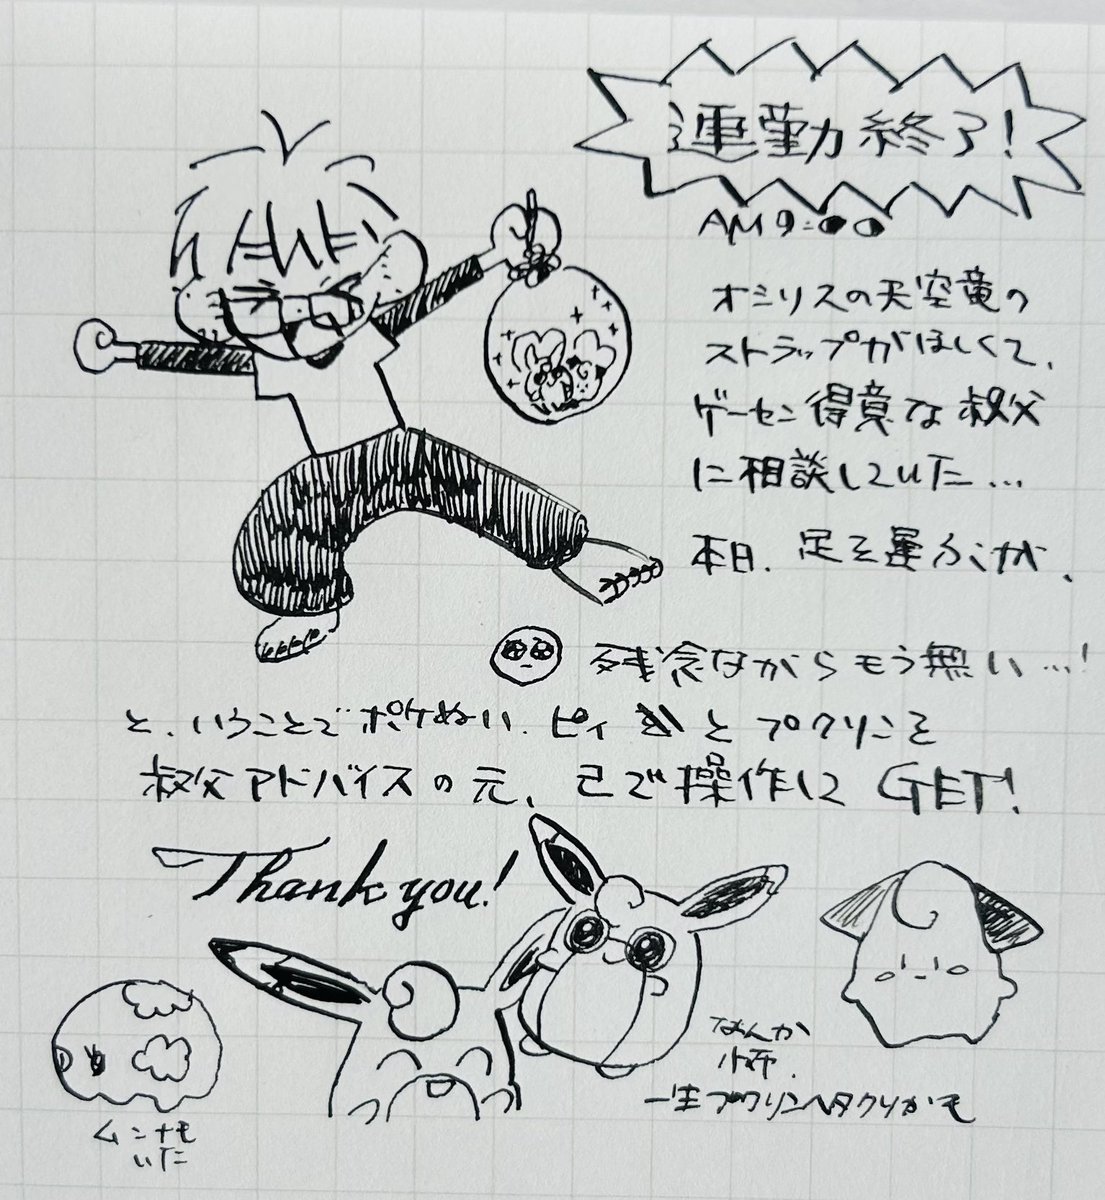 連勤終了!
AM 9:00
オシリスの天空竜の
ストラップがほしくて、
ゲーセン得意な叔父
に相談していた…
本日、足を運ぶが、
残念ながらもう無い…!
と、いうことでポケぬい、ピィとプクリンを
叔父アドバイスの元、己で操作して GET!
Thank you!
なんか
一生プクリンヘタクソかも
ムンナも
いた